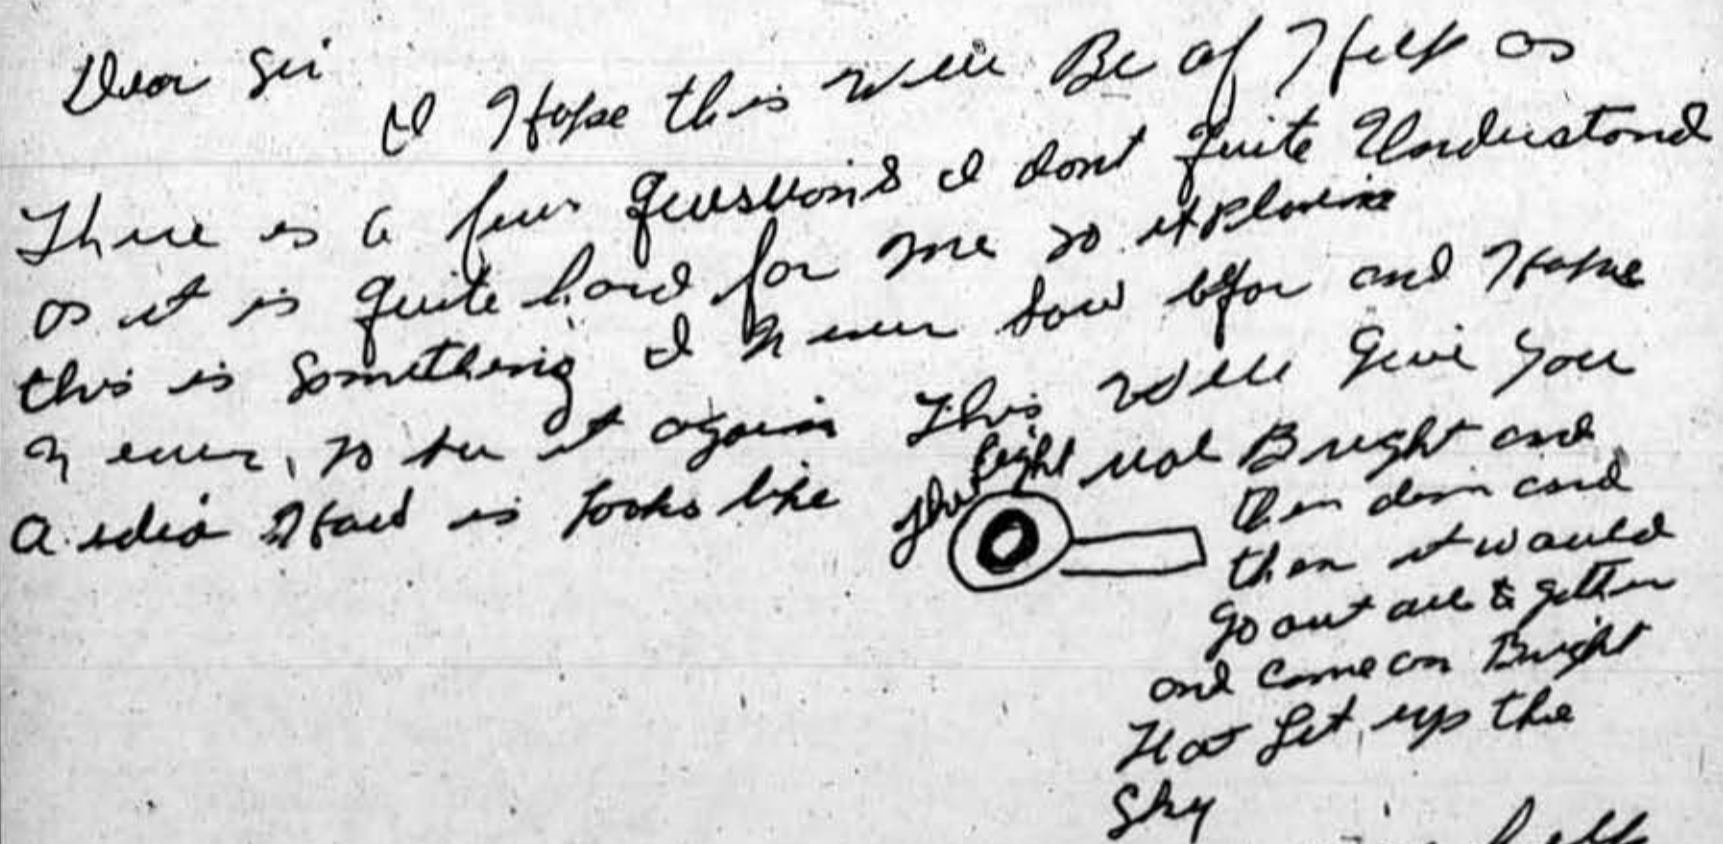 Dear Sir
I Hope this Will Be of Help as
There is a few Questions I dont Quite Understand
as it is Quite hard for me to explain
this is Something I never saw befor and Hope
never, to see it again This Will Give You
a idia How is Looks like The light was Bright and
then dim and
then it would
go out all to gether
and come on Bright
Lit up the
Sky
help